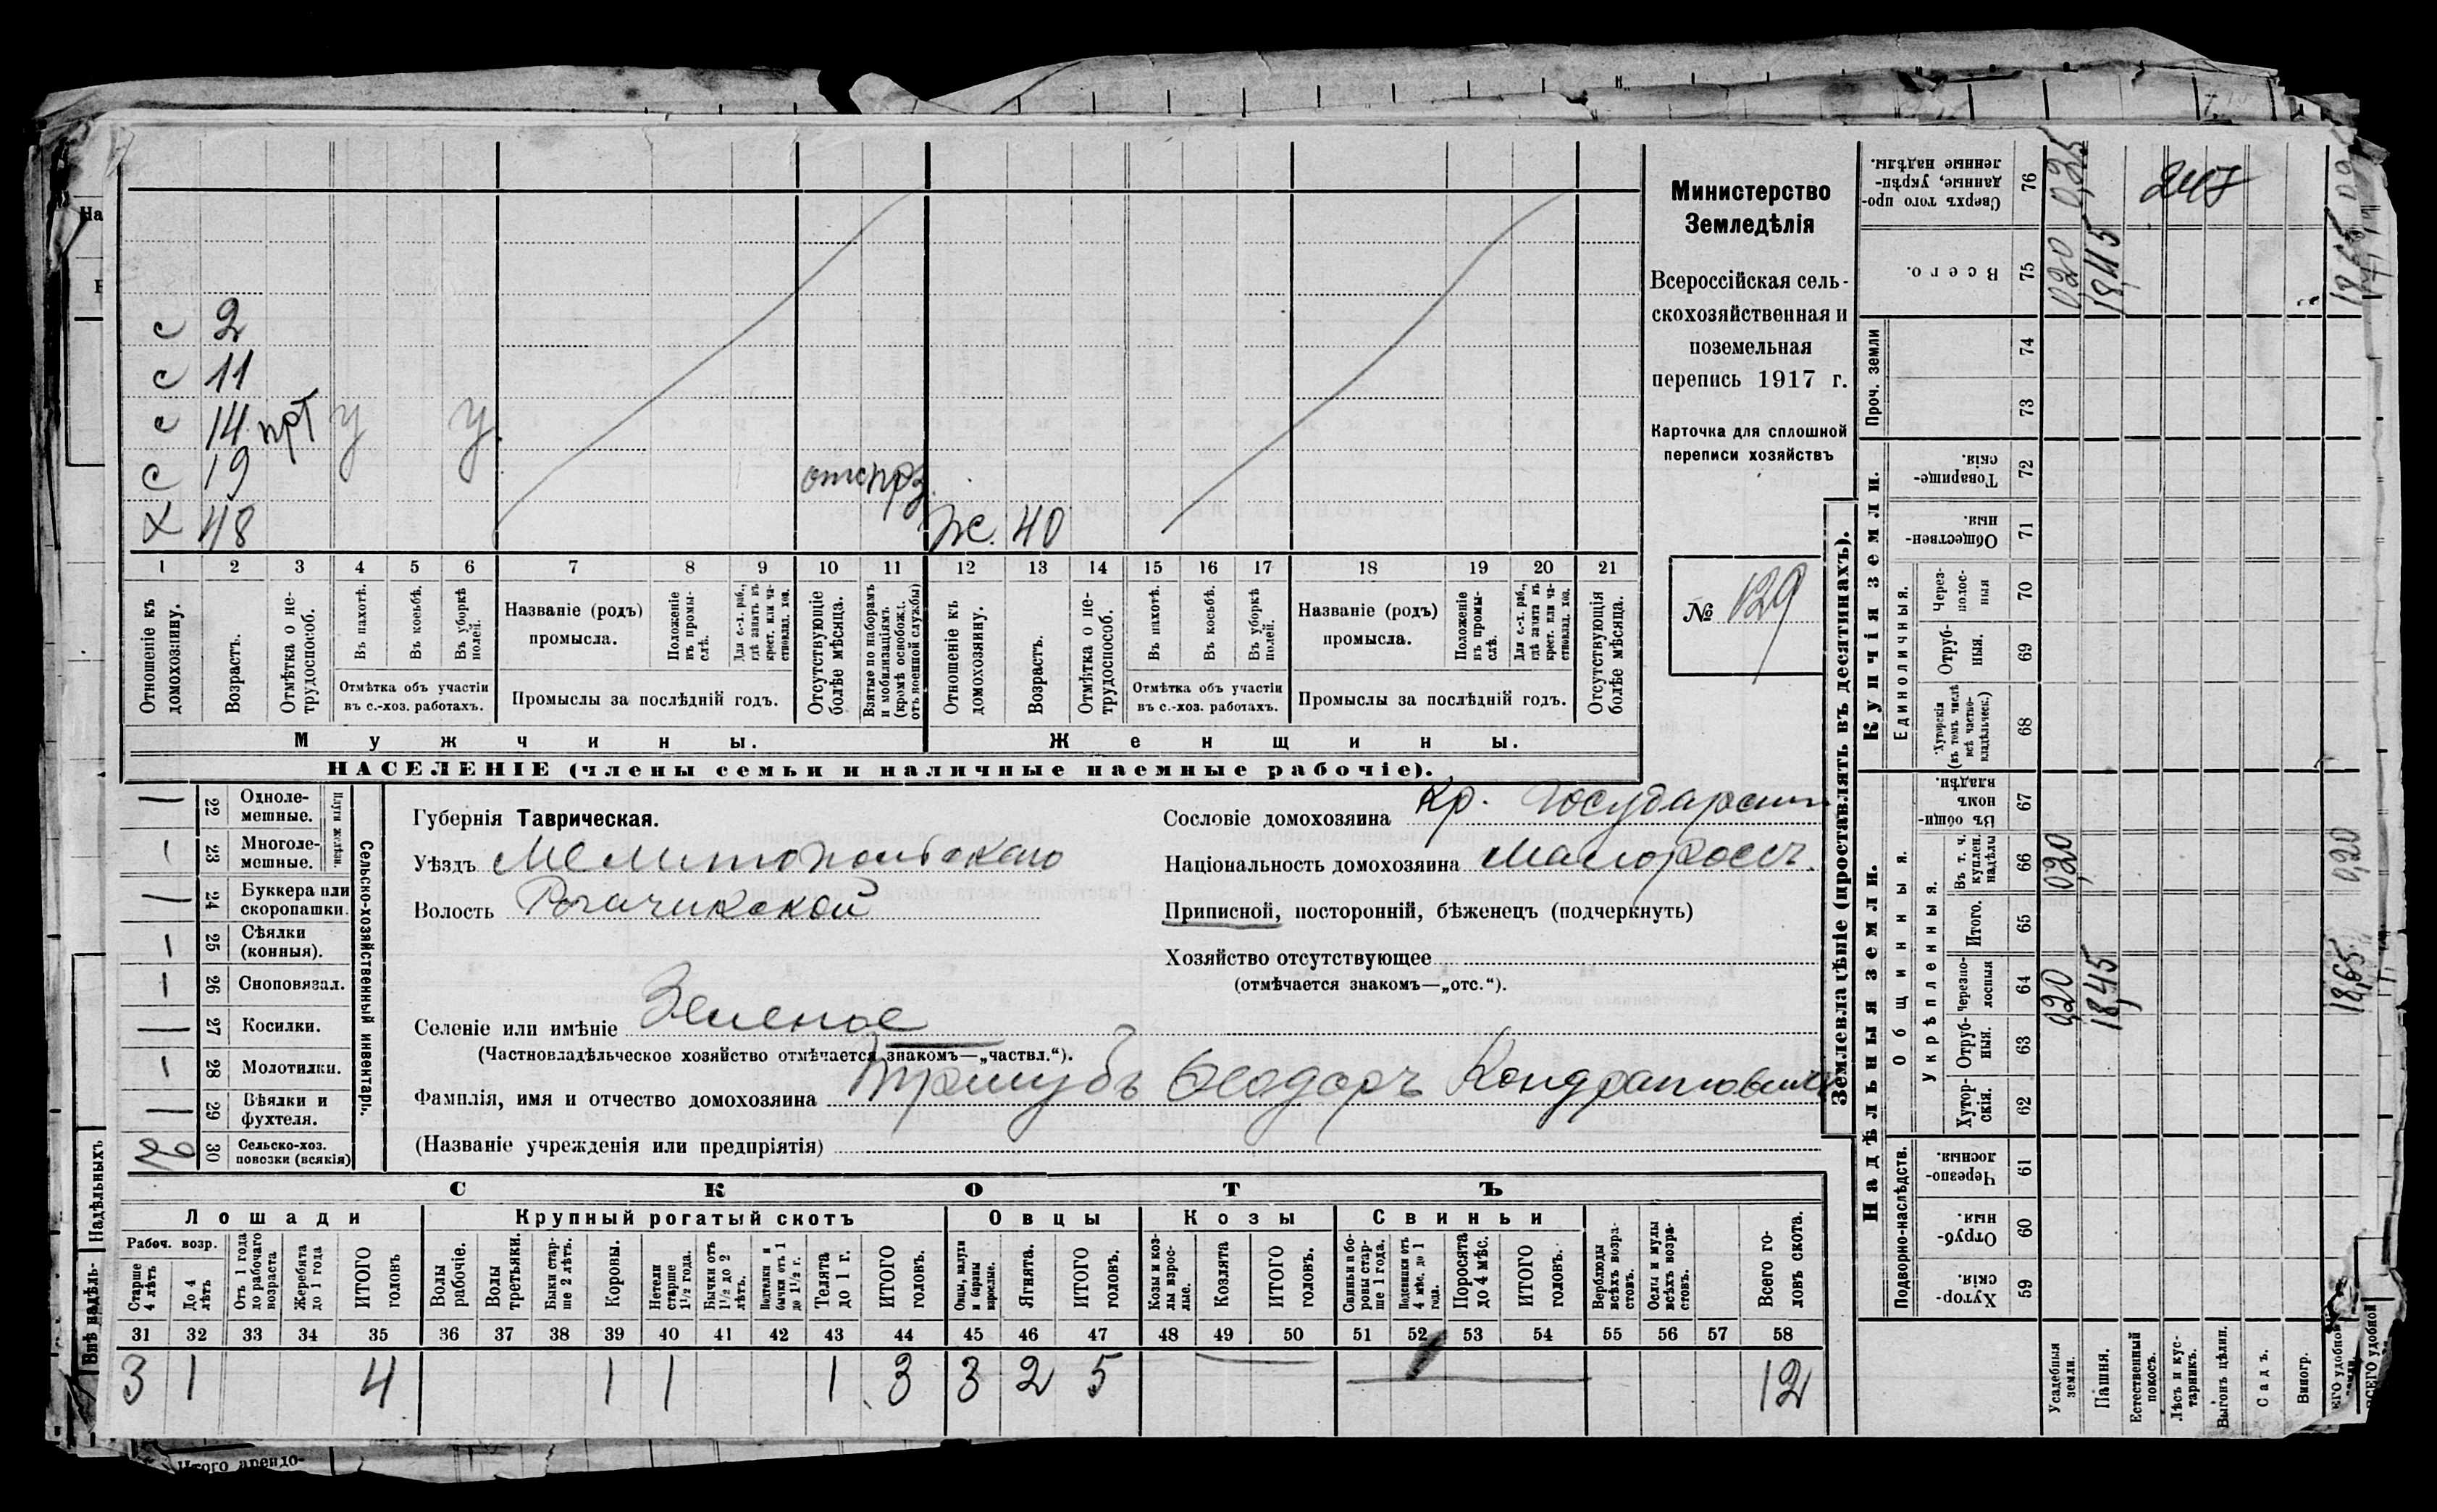 На
с 2
с 11
с 14 прт у у
с 19 отс прз.
Х 48 Ж. 40
1 2 3 4 5 6 7 8 9 10 11 12 13 14 15 16 17 18 19 20 21
Отношеніе къ домохозяину.
Возрастъ.
Отмѣтка о не-
трудоспособ.
Въ пахотѣ.
Въ косьбѣ.
Въ уборкѣ
полей.
Отмѣтка объ участіи
въ с.-хоз. работахъ.
Названіе (родъ)
промысла.
Положеніе
въ промы-
слѣ.
Для с.-х. раб.,
гдѣ занятъ въ
крест. или ча-
стновлад. хоз.
Промыслы за послѣдній годъ.
Отсутствующіе
болѣе мѣсяца.
Взятые по наборамъ
и мобилизаціямъ
(кромѣ освобожд.
отъ военной службы)
Отношеніе къ
домохозяину.
Возрастъ.
Отмѣтка о не-
трудоспособ.
Въ пахотѣ.
Въ косьбѣ.
Въ уборкѣ
полей.
Отмѣтка объ участіи
въ с.-хоз. работахъ.
Названіе (родъ)
промысла.
Положеніе
въ промы-
слѣ.
Для с.-х. раб.,
гдѣ занята въ
крест. или ча-
стновлад. хоз.
Промыслы за послѣдній годъ.
Отсутствующія
болѣе мѣсяца.
Мужчины.
Женщины.
НАСЕЛЕНІЕ (члены семьи и наличные наемные рабочіе).
Министерство
Земледѣлія
Всероссійская сель-
скохозяйственная и
поземельная
перепись 1917 г.
Карточка для сплошной
переписи хозяйствъ
№ 129
— 22 Одноле-
мешные.
1 23 Многоле-
мешные.
Плуги желѣзн.
— 24 Буккера или
скоропашки.
1 25 Сѣялки
(конныя).
1 26 Сноповязал.
— 27 Косилки.
1 28 Молотилки.
— 29 Вѣялки и
фухтеля.
2 30 Сельско-хоз.
повозки (всякія)
Сельско-хозяйственный инвентарь.
Губернія Таврическая.
Уѣздъ Мелитопольскаго
Волость Рогачикской
Селеніе или имѣніе Зеленое
(Частновладѣльческое хозяйство отмѣчается знакомъ—„частвл.“).
Фамилія, имя и отчество домохозяина Ѳеодоръ Кондратовичъ
(Названіе учрежденія или предпріятія)
Сословіе домохозяина Кр. Государств
Національность домохозяина малоросс.
Приписной, посторонній, бѣженецъ (подчеркнуть)
Хозяйство отсутствующее
(отмѣчается знакомъ—„отс.“).
СКОТЪ
Лошади
Крупный рогатый скотъ
Овцы
Козы
Свиньи
Рабоч. возр.
Старше
4 лѣтъ
До 4
лѣтъ
Отъ 1 года
до рабочаго
возраста
Жеребята
до 1 года
ИТОГО
головъ
Волы
рабочіе.
Волы
третьяки.
Быки стар-
ше 2 лѣтъ.
Коровы.
Нетели
старше
1½ года.
Бычки отъ
1½ до 2
лѣтъ.
Подтелки и
бычки отъ 1
до 1½ г.
Телята
до 1 г.
ИТОГО
головъ.
Овцы, валухи
и бараны
взрослые.
Ягнята.
ИТОГО
головъ.
Козы и коз-
лы взрос-
лые.
Козлята
ИТОГО
головъ.
Свиньи и бо-
ровы стар-
ше 1 года.
Подсвинки отъ
4 мѣс. до 1
года.
Поросята
до 4 мѣс.
ИТОГО
головъ.
Верблюды
всѣхъ возра-
стовъ.
Ослы и мулы
всѣхъ возра-
стовъ.
Всего го-
ловъ скота.
31 32 33 34 35 36 37 38 39 40 41 42 43 44 45 46 47 48 49 50 51 52 53 54 55 56 57 58
3 1 4 1 1 1 3 3 2 5 — — 12
Землевладѣніе (проставлять въ десятинахъ).
Купчія земли.
Надѣльныя земли.
Проч. земли
Сверхъ того про-
данные, укрѣп-
ленные надѣлы.
76
Всего.
75
74
73
Товарище-
скія.
72
Обществен-
ныя.
71
Единоличныя.
Через-
полос-
ныя
70
Отруб-
ныя.
69
Хуторскія
(въ томъ числѣ
всѣ частно-
владѣльческ.)
68
Общинныя.
Въ общи-
номъ
владѣн.
67
Укрѣпленныя.
Въ т. ч.
куплен.
надѣлы
66
Итого.
65
Черезпо-
лосныя
64
Отруб-
ныя.
63
Хутор-
скія.
62
Подворно-наслѣдств.
Черезпо-
лосныя.
61
Отруб-
ныя.
60
Хутор-
скія.
59
Усадебныя
земли.
0,20 0,20 0,20 0,25
Пашня.
18,45 18,45
Естественный
покосъ.
Лѣсъ и кус-
тарникъ.
Выгонъ цѣлин.
Садъ.
Виногр.
18,65 0,20 18,65
247
ВСЕГО удобной
Надѣльныхъ
Внѣ надѣль-
Итого арендо-